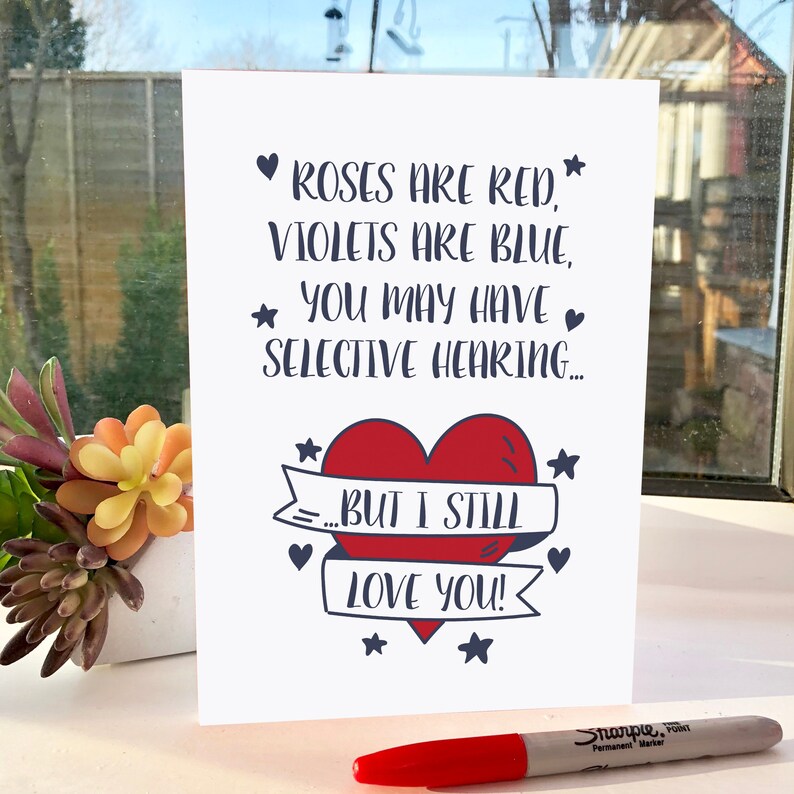 ROSES ARE RED,
VIOLETS ARE BLUE,
YOU MAY HAVE
SELECTIVE HEARING...
...BUT I STILL
LOVE YOU!
Sharpie. FINE POINT
Permanent Marker